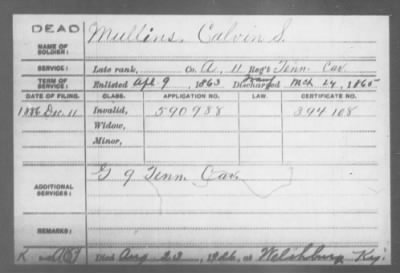 DEAD
NAME OF SOLDIER: Mullins, Calvin S.
SERVICE: Late rank, Co. A, 11 Reg't Tenn. Cav.
TERM OF SERVICE: Enlisted Apl 9, 1863 Discharged Mch 24, 1865
DATE OF FILING. CLASS. APPLICATION NO. LAW. CERTIFICATE NO.
1886 Dec. 11 Invalid, 590988 394108
Widow,
Minor,
ADDITIONAL SERVICES: G 9 Tenn. Cav.
REMARKS:
Died Aug 23, 1926, at Welchburg Ky.